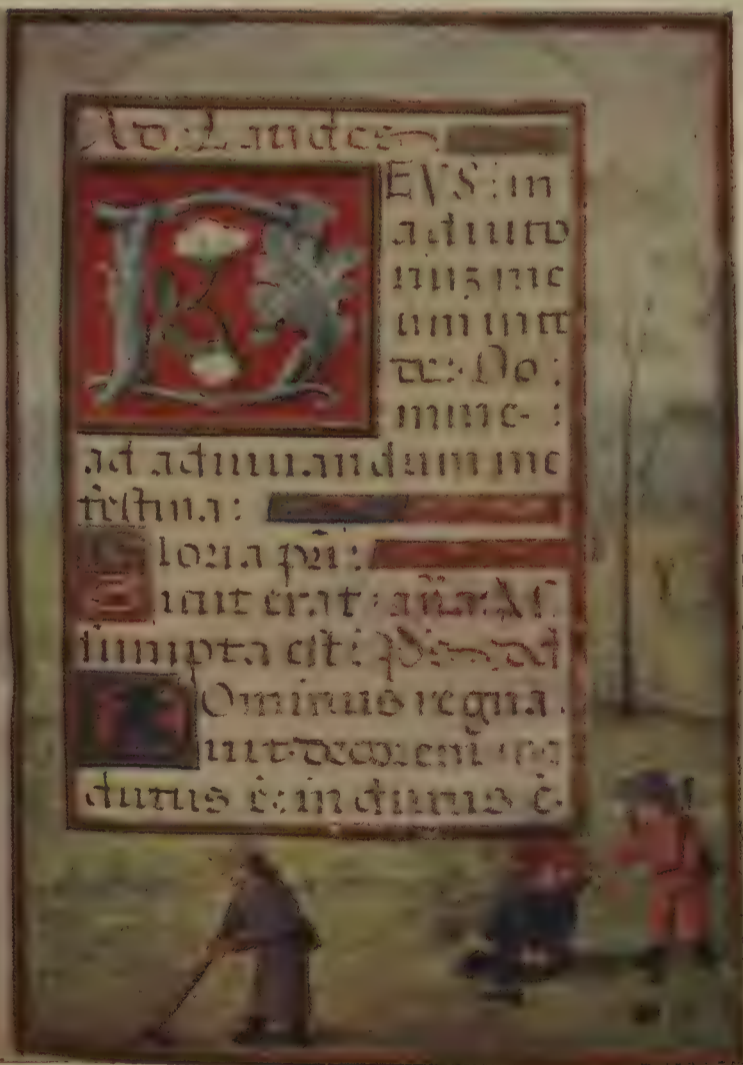 Ad: Laudes
DEVS: in
adiuto
riuz me
um intē
de: Do:
mine- :
ad adiuuandum me
festina:
Gloria pr̃i:
Sicut erat: añã: Aſ
ſumpta eſt: Ps
Dominus regna.
uit decorem in
dutus ē: indutus ē-